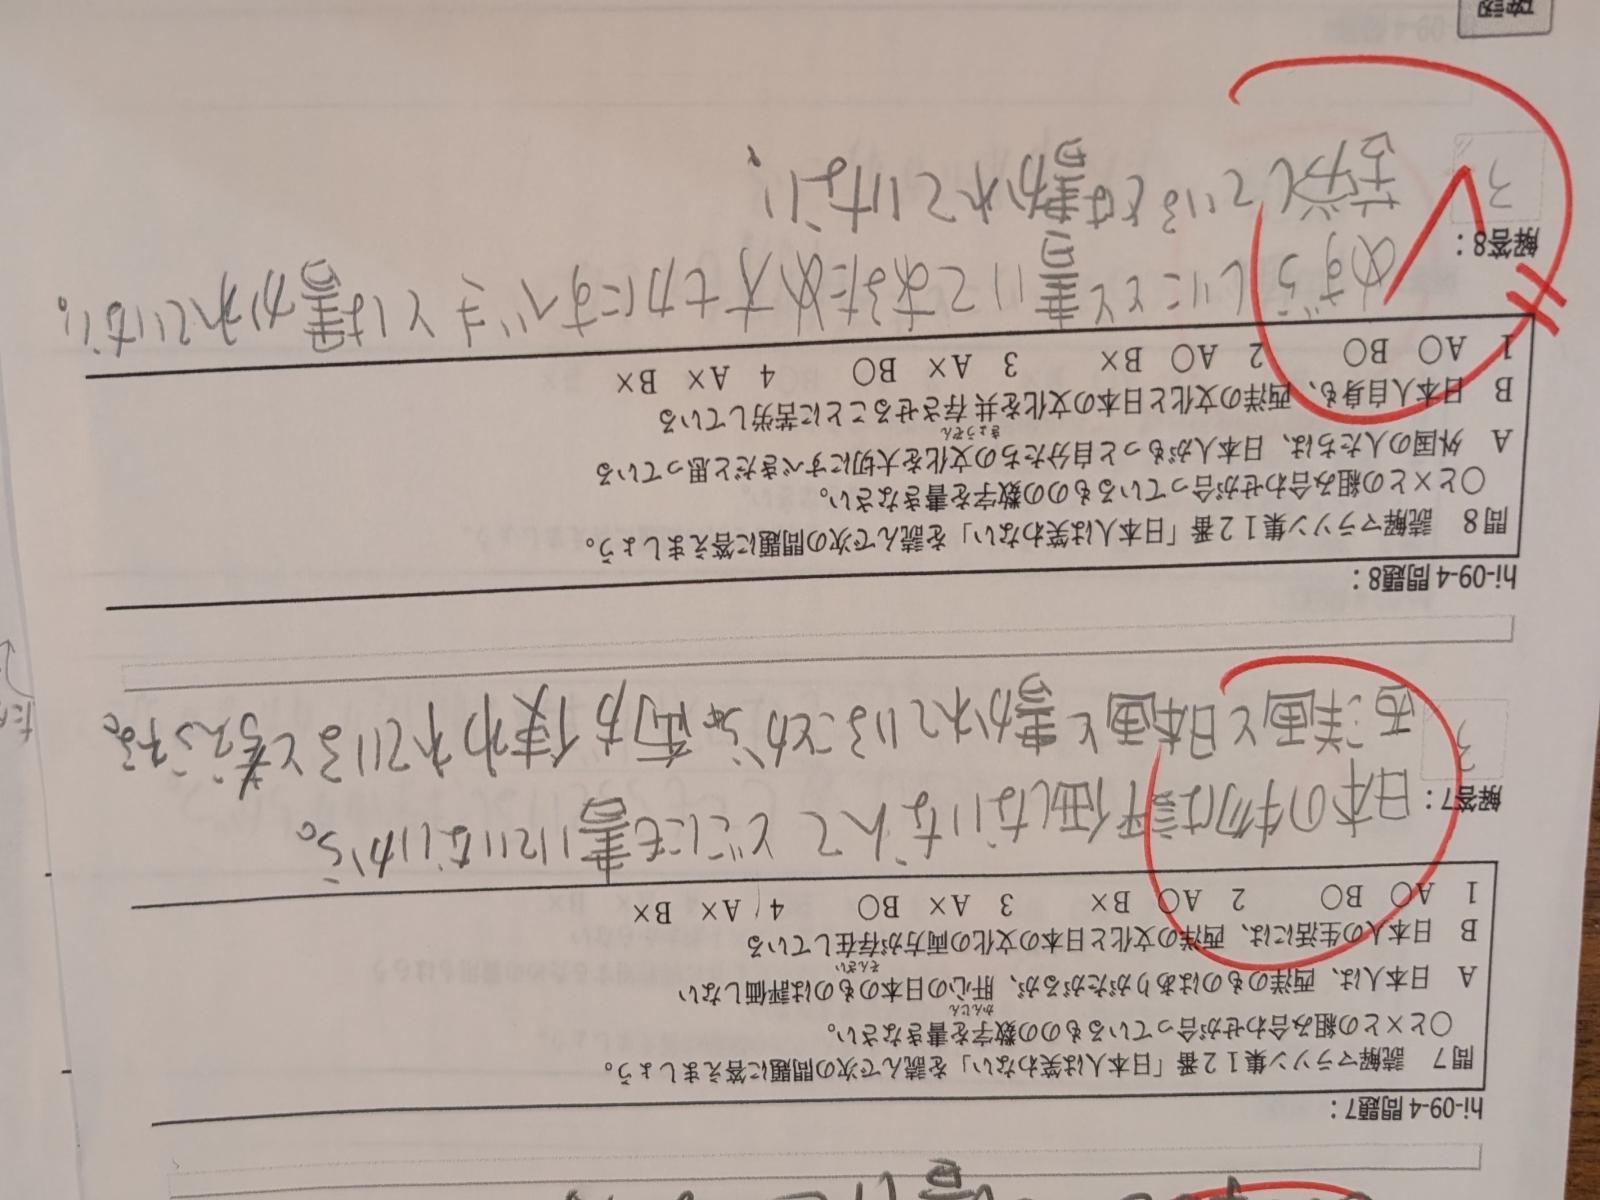 hi-09-4 問題7：
問7 読解マラソン集12番「日本人は笑わない」を読んで次の問題に答えましょう。
○と×との組み合わせが合っているものの数字を書きなさい。
A 日本人は、西洋のものはありがたがるが、肝心の日本のものは評価しない
かんじん
そんざい
B 日本人の生活には、西洋の文化と日本の文化の両方が存在している
1 A○ B○ 2 A○ B× 3 A× B○ 4 A× B×
解答7：
3
日本の物は評価しないなんてどこにも書いていないから。
西洋画と日本画と書かれていることから両方使われていると考えれる。
hi-09-4 問題8：
問8 読解マラソン集12番「日本人は笑わない」を読んで次の問題に答えましょう。
○と×との組み合わせが合っているものの数字を書きなさい。
A 外国の人たちは、日本人がもっと自分たちの文化を大切にすべきだと思っている
きょうぞん
B 日本人自身も、西洋の文化と日本の文化を共存させることに苦労している
1 A○ B○ 2 A○ B× 3 A× B○ 4 A× B×
解答8：
3
めずらしいことと書いてあるため大セカにすべきとは書かれていない。
苦労しているとは書かれていない。
確認